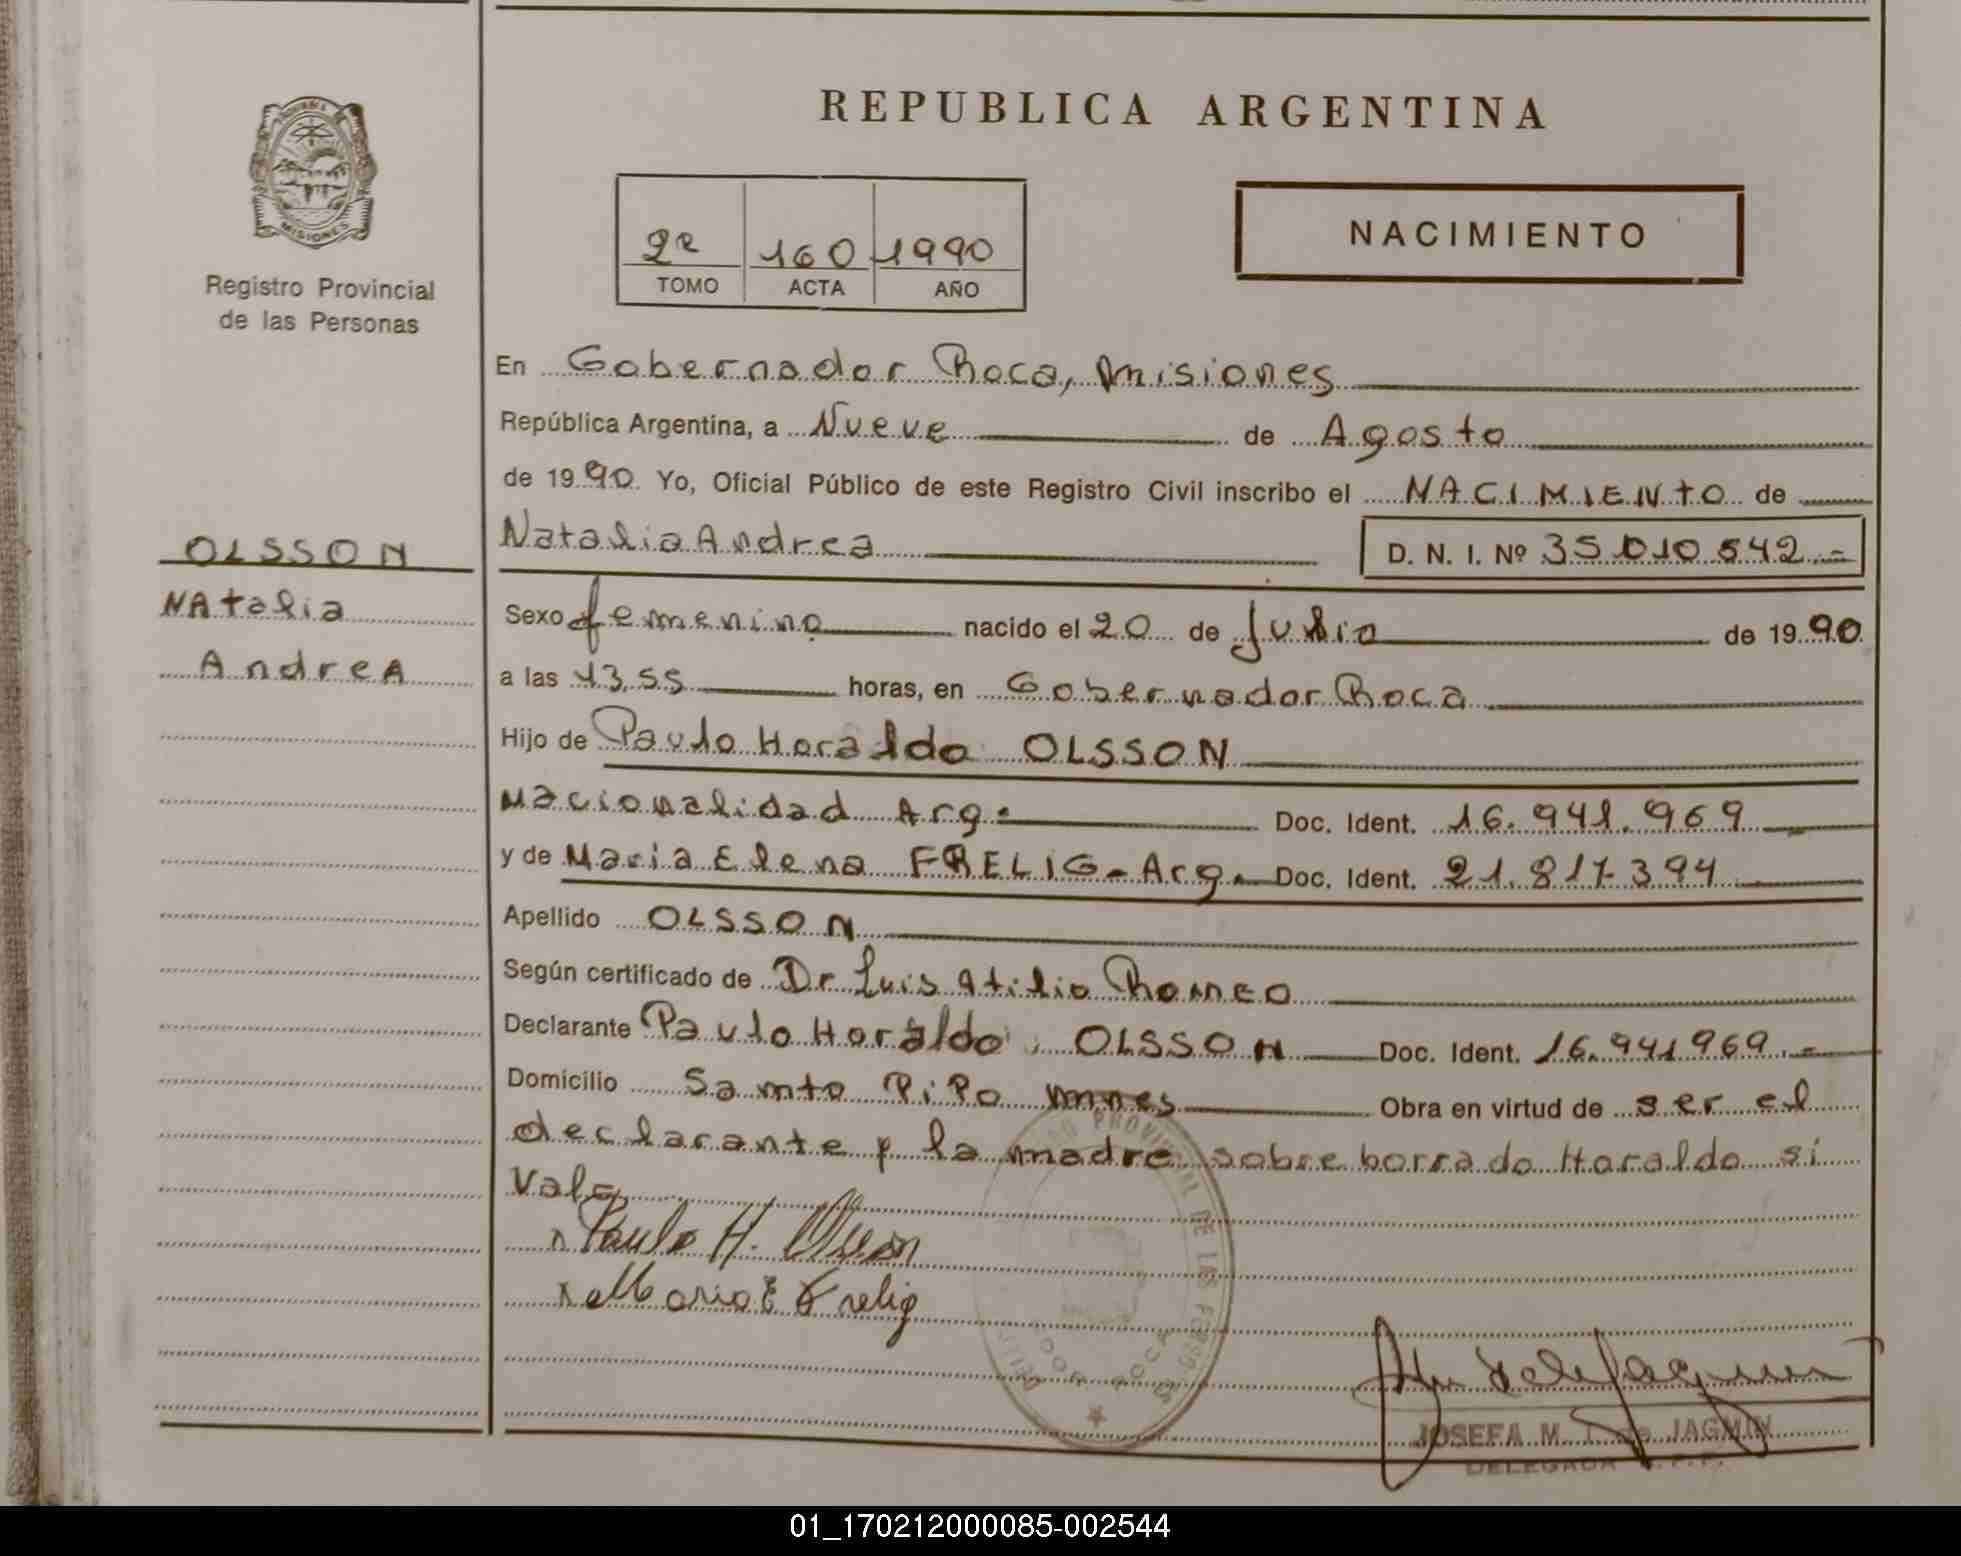 REPUBLICA ARGENTINA
MISIONES
Registro Provincial
de las Personas
2º 160 1990
TOMO ACTA AÑO
NACIMIENTO
En Gobernador Roca, Misiones
República Argentina, a Nueve de Agosto
de 1990 Yo, Oficial Público de este Registro Civil inscribo el NACIMIENTO de
OLSSON
Natalia
Andrea
Natalia Andrea D. N. I. Nº 35.010.542.-
Sexo femenino nacido el 20 de Julio de 1990
a las 13,55 horas, en Gobernador Roca
Hijo de Paulo Haraldo OLSSON
Nacionalidad Arg. Doc. Ident. 16.941.969
y de Maria Elena FRELIG - Arg. Doc. Ident. 21.817.394
Apellido OLSSON
Según certificado de Dr Luis Atilio Romeo
Declarante Paulo Haraldo OLSSON Doc. Ident. 16.941969.-
Domicilio Santo PiPo mnes Obra en virtud de ser el
declarante y la madre sobre borrado Haraldo si
Vale
Paulo H. Olsson
Maria E Frelig
PROVINCIAL DE LAS PERSONAS
GDOR ROCA
JOSEFA M. de JAGMIN
DELEGADA R.P.P.
01_170212000085-002544